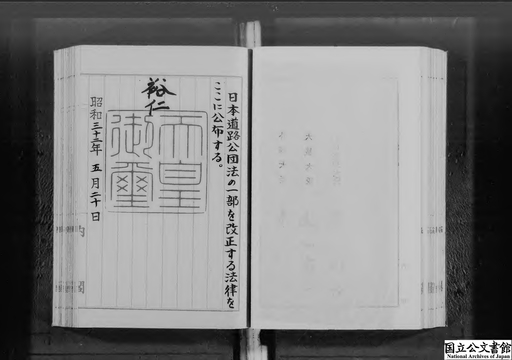 日本道路公団法の一部を改正する法律を
ここに公布する。
裕仁
天皇
御璽
昭和三十三年 五月二十日
内 閣
国立公文書館
National Archives of Japan